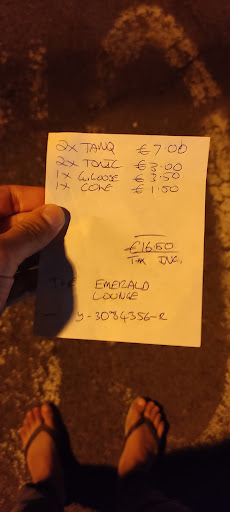 2x TANQ €7.00
2x TONIC €3.00
1x G.GOOSE €3.50
1x COKE €1.50
€16.50
TAX INC.
THE EMERALD
LOUNGE
y-3084356-R